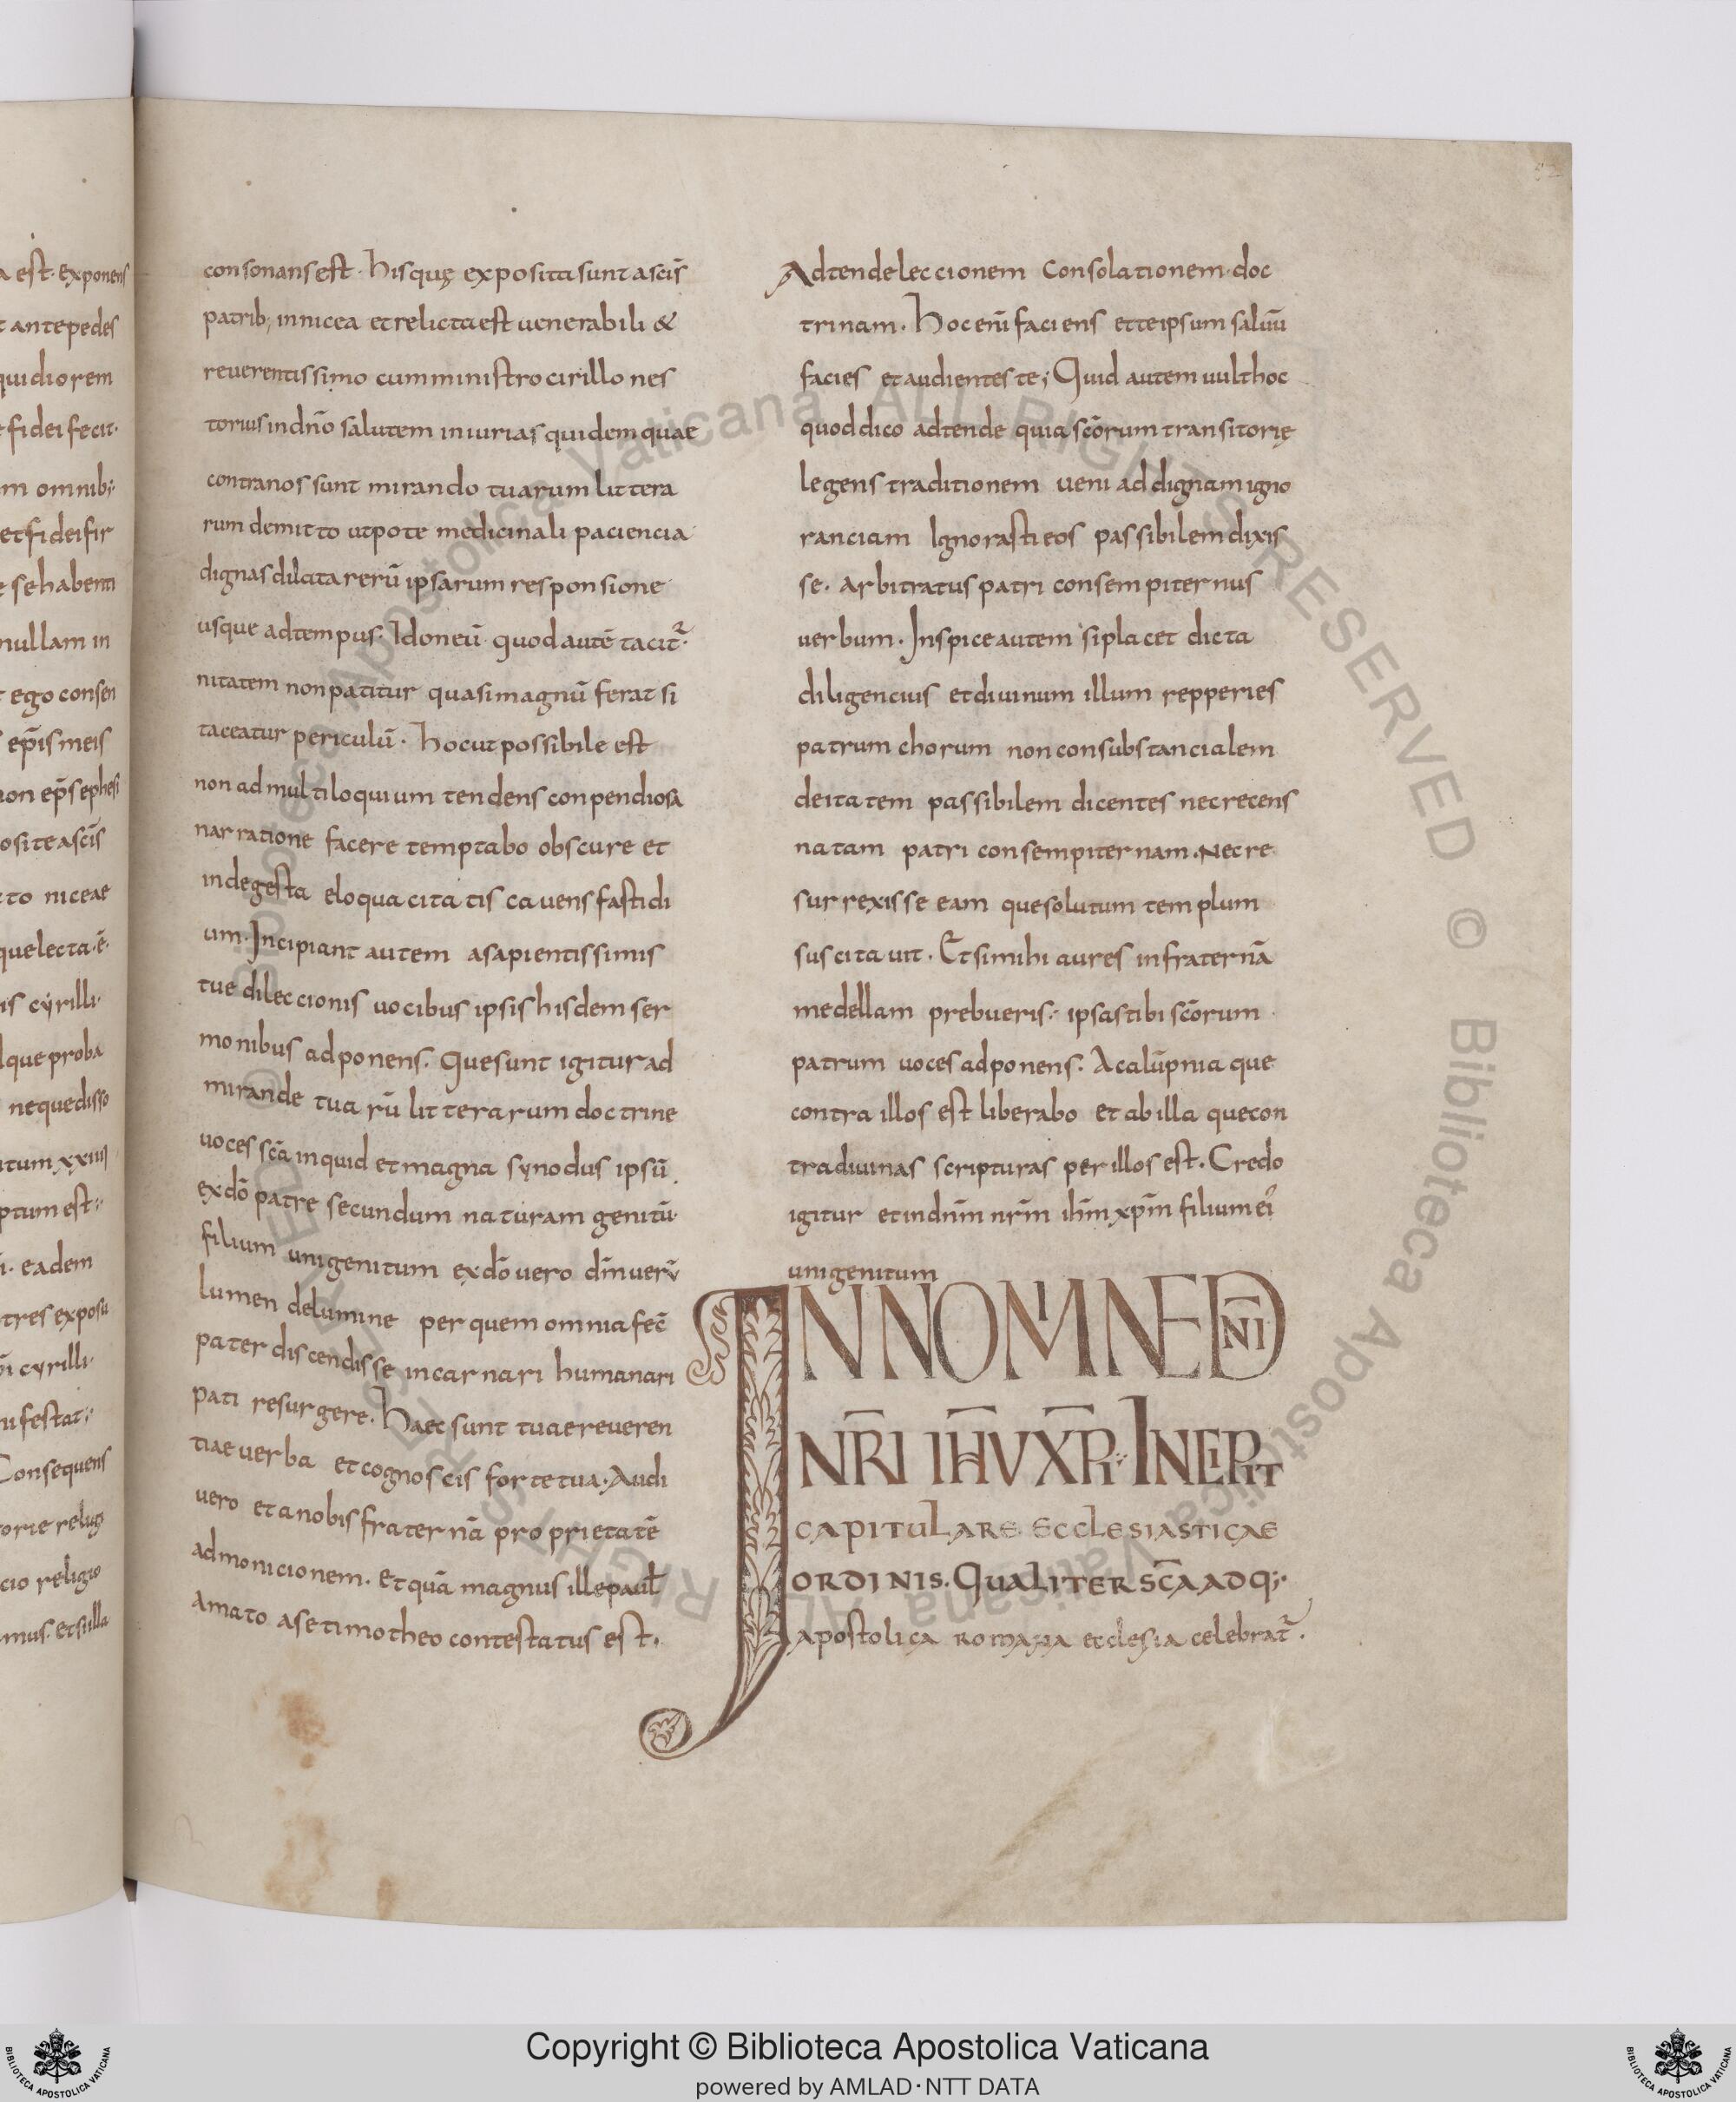 a est. exponens
t antepedes
quidiorem
e fidei fecit.
m omnib;
et fidei fir
e se habenti
nullam in
t ego consen
ep̄is meis
non ep̄s ephesi
osite a sc̄is
to niceae
que lecta.ē.
is cyrilli.
lque proba
neque disso
itum xxiiii
ptum est:
i. eadem
tres exposu
ēi cyrilli.
nifestat;
Consequens
orie relug
cio religio
mus. et si illa
consonans est. hisquę exposita sunt a sc̄is
patrib; in nicea et relicta est uenerabili &
reuerentissimo cumministro cirillo nes
torius in dn̄o salutem iniurias quidem quae
contra nos sunt mirando tuarum littera
rum demitto utpote medicinali paciencia
dignas dilata rerū ipsarum responsione
usque ad tempus. Idoneū quod autē tacit᷑.
nitatem non patitur quasi magnū ferat si
taceatur periculū. hoc ut possibile est
non ad multiloquium tendens conpendiosa
narratione facere temptabo obscure et
indegesta eloquacitatis cauens fastidi
um. Incipiant autem a sapientissimis
tue dileccionis uocibus ipsis hisdem ser
monibus adponens. que sunt igitur ad
mirande tuarū litterarum doctrine
uoces sc̄a inquid et magna synodus ipsū.
ex dō patre secundum naturam genitū
filium unigenitum ex dō uero dm̄ uerū
lumen de lumine per quem omnia fec̄
pater discendisse incarnari humanari
pati resurgere. haec sunt tuae reueren
tiae uerba et cognoscis forte tua. Audi
uero et a nobis fraternā proprietatē
admonicionem. et quā magnus ille paul̄
amato a se timotheo contestatus est.
Adtende leccionem Consolationem. doc
trinam. hoc eni᷑ faciens et te ipsum saluū
facies et audientes te; Quid autem uult hoc
quod dico adtende quia sc̄orum transitorię
legens traditionem ueni ad dignam igno
ranciam Ignorasti eos passibilem dixis
se. arbitratus patri consempiternus
uerbum. Inspice autem si placet dicta
diligencius et diuinum illum repperies
patrum chorum non consubstancialem
deitatem passibilem dicentes nec recens
natam patri consempiternam. Nec re
surrexisse eam que solutum templum
suscitauit. Et si mihi aures in fraternā
medellam prebueris; ipsas tibi sc̄orum
patrum uoces adponens. A calūpnia que
contra illos est liberabo et ab illa que con
tra diuinas scripturas per illos est. Credo
igitur et in dn̄m nr̄m ih̄m xp̄m filium ei᷑
unigenitum
IN NOMINE DN̄I
NR̄I IH̄V XP̄I: INCIPIT
CAPITULARE ECCLESIASTICAE
ORDINIS. QUALITER SC̄A ADQ;.
apostolica romana ecclesia celebrat᷑.
Copyright © Biblioteca Apostolica Vaticana
powered by AMLAD·NTT DATA